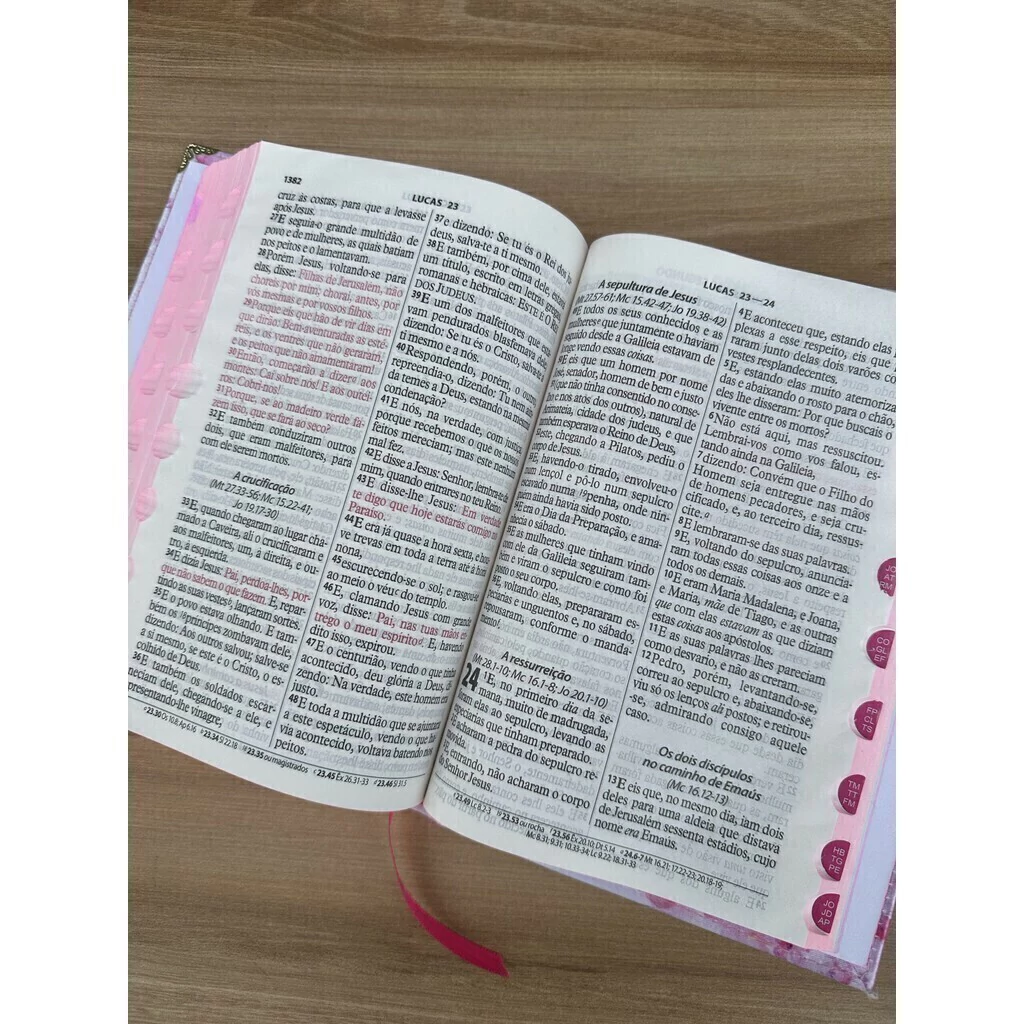 1382
LUCAS 23
cruz às costas, para que a levasse
após Jesus.
27E seguia-o grande multidão de
povo e de mulheres, as quais batiam
nos peitos e o lamentavam.
28Porém Jesus, voltando-se para
elas, disse: Filhas de Jerusalém, não
choreis por mim; chorai, antes, por
vós mesmas e por vossos filhos.
29Porque eis que hão de vir dias em
que dirão: Bem-aventuradas as esté-
reis, e os ventres que não geraram,
e os peitos que não amamentaram!
30Então, começarão a dizer aos
montes: Caí sobre nós! E aos outei-
ros: Cobri-nos!
31Porque, se ao madeiro verde fa-
zem isso, que se fará ao seco?
32E também conduziram outros
dois, que eram malfeitores, para
com ele serem mortos.
A crucificação
(Mt 27.33-56; Mc 15.22-41;
Jo 19.17-30)
33E, quando chegaram ao lugar cha-
mado a Caveira, ali o crucificaram e
aos malfeitores, um, à direita, e ou-
tro, à esquerda.
34E dizia Jesus: Pai, perdoa-lhes, por-
que não sabem o que fazem. E, repar-
tindo as suas vestes, lançaram sortes.
35E o povo estava olhando. E tam-
bém os príncipes zombavam dele,
dizendo: Aos outros salvou; salve-se
a si mesmo, se este é o Cristo, o es-
colhido de Deus.
36E também os soldados escar-
neciam dele, chegando-se a ele, e
apresentando-lhe vinagre,
37e dizendo: Se tu és o Rei dos
deus, salva-te a ti mesmo.
38E também, por cima dele, estava
um título, escrito em letras gregas,
romanas e hebraicas: ESTE É O REI
DOS JUDEUS.
39E um dos malfeitores que esta-
vam pendurados blasfemava dele,
dizendo: Se tu és o Cristo, salva-te a
ti mesmo e a nós.
40Respondendo, porém, o outro,
repreendia-o, dizendo: Tu nem ain-
da temes a Deus, estando na mesma
condenação?
41E nós, na verdade, com justiça,
porque recebemos o que os nossos
feitos mereciam; mas este nenhum
mal fez.
42E disse a Jesus: Senhor, lembra-te de
mim, quando entrares no teu Reino.
43E disse-lhe Jesus: Em verdade
te digo que hoje estarás comigo no
Paraíso.
44E era já quase a hora sexta, e hou-
ve trevas em toda a terra até à hora
nona,
45escurecendo-se o sol; e rasgou-se
ao meio o véu do templo.
46E, clamando Jesus com grande
voz, disse: Pai, nas tuas mãos en-
trego o meu espírito. E, havendo
dito isso, expirou.
47E o centurião, vendo o que tinha
acontecido, deu glória a Deus, di-
zendo: Na verdade, este homem era
justo.
48E toda a multidão que se ajuntara
a este espetáculo, vendo o que ha-
via acontecido, voltava batendo nos
peitos.
23.30 Os 10.8; Ap 6.16 23.34 Sl 22.18 23.35 ou magistrados 23.45 Êx 26.31-33 23.46 Sl 31.5
LUCAS 23—24
A sepultura de Jesus
(Mt 27.57-61; Mc 15.42-47; Jo 19.38-42)
E todos os seus conhecidos e as
mulheres que juntamente o haviam
seguido desde a Galileia estavam de
longe vendo essas coisas.
E eis que um homem por nome
José, senador, homem de bem e justo
(que não tinha consentido no conse-
lho e nos atos dos outros), natural de
Arimateia, cidade dos judeus, e que
também esperava o Reino de Deus,
este, chegando a Pilatos, pediu o
corpo de Jesus.
E, havendo-o tirado, envolveu-o
num lençol e pô-lo num sepulcro
escavado numa penha, onde nin-
guém ainda havia sido posto.
E era o Dia da Preparação, e ama-
nhecia o sábado.
E as mulheres que tinham vindo
com ele da Galileia seguiram tam-
bém e viram o sepulcro e como foi
posto o seu corpo.
E, voltando elas, prepararam es-
peciarias e unguentos e, no sábado,
repousaram, conforme o manda-
mento.
A ressurreição
(Mt 28.1-10; Mc 16.1-8; Jo 20.1-10)
24 1E, no primeiro dia da se-
mana, muito de madrugada,
foram elas ao sepulcro, levando as
especiarias que tinham preparado.
E acharam a pedra do sepulcro re-
movida.
E, entrando, não acharam o corpo
do Senhor Jesus.
4E aconteceu que, estando elas
plexas a esse respeito, eis que
raram junto delas dois varões co
vestes resplandecentes.
5E, estando elas muito atemoriza
das e abaixando o rosto para o chão,
eles lhe disseram: Por que buscais o
vivente entre os mortos?
6Não está aqui, mas ressuscitou.
Lembrai-vos como vos falou, es-
tando ainda na Galileia,
7dizendo: Convém que o Filho do
Homem seja entregue nas mãos
de homens pecadores, e seja cru-
cificado, e, ao terceiro dia, ressus-
cite.
8E lembraram-se das suas palavras.
9E, voltando do sepulcro, anuncia-
ram todas essas coisas aos onze e a
todos os demais.
10E eram Maria Madalena, e Joana,
e Maria, mãe de Tiago, e as outras
que com elas estavam as que diziam
estas coisas aos apóstolos.
11E as suas palavras lhes pareciam
como desvario, e não as creram.
12Pedro, porém, levantando-se,
correu ao sepulcro e, abaixando-se,
viu só os lenços ali postos; e retirou-
-se, admirando consigo aquele
caso.
Os dois discípulos
no caminho de Emaús
(Mc 16.12-13)
13E eis que, no mesmo dia, iam dois
deles para uma aldeia que distava
de Jerusalém sessenta estádios, cujo
nome era Emaús.
23.49 Lc 8.2-3 23.53 ou rocha 23.56 Êx 20.10; Dt 5.14 24.6-7 Mt 16.21; 17.22-23; 20.18-19;
Mc 8.31; 9.31; 10.33-34; Lc 9.22; 18.31-33
JO
AT
RM
CO
GL
EF
FP
CL
TS
TM
TT
FM
HB
TG
PE
JO
JD
AP